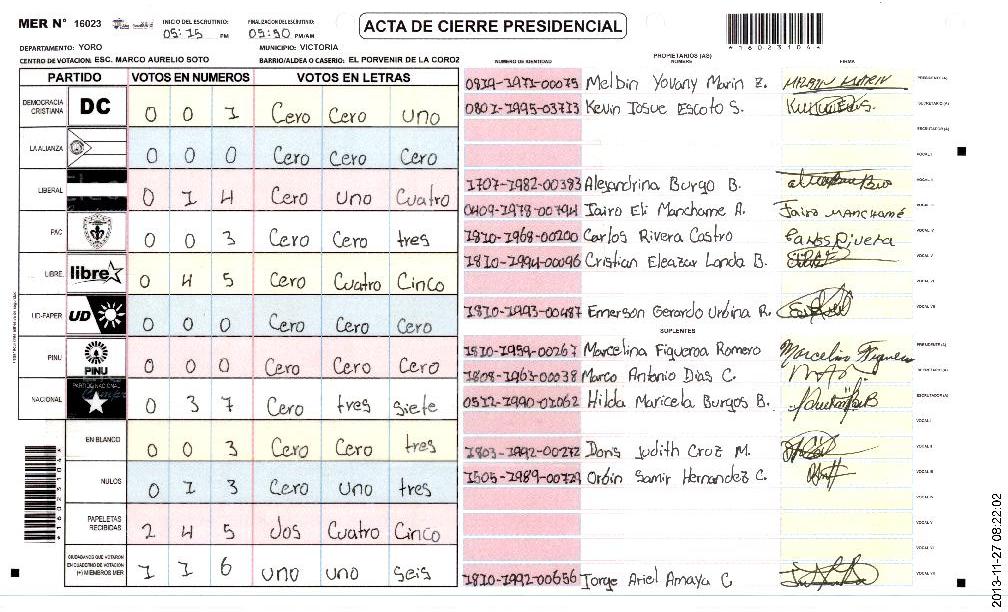 MER N° 16023
INICIO DEL ESCRUTINIO: 05:15 PM
FINALIZACION DEL ESCRUTINIO: 05:50 PM/AM
ACTA DE CIERRE PRESIDENCIAL
*16023104*
DEPARTAMENTO: YORO
MUNICIPIO: VICTORIA
CENTRO DE VOTACION: ESC. MARCO AURELIO SOTO
BARRIO/ALDEA O CASERIO: EL PORVENIR DE LA COROZ
PARTIDO VOTOS EN NUMEROS VOTOS EN LETRAS
DEMOCRACIA CRISTIANA DC 0 0 1 Cero Cero uno
LA ALIANZA 0 0 0 Cero Cero Cero
LIBERAL 0 1 4 Cero uno Cuatro
PAC 0 0 3 Cero Cero tres
LIBRE. libre 0 4 5 Cero Cuatro Cinco
UD-FAPER UD 0 0 0 Cero Cero Cero
PINU PINU 0 0 0 Cero Cero Cero
NACIONAL PARTIDO NACIONAL 0 3 7 Cero tres siete
EN BLANCO 0 0 3 Cero Cero tres
NULOS 0 1 3 Cero uno tres
PAPELETAS RECIBIDAS 2 4 5 dos Cuatro Cinco
CIUDADANOS QUE VOTARON EN CUADERNO DE VOTACION (+) MIEMBROS MER 1 1 6 uno uno seis
*16023104*
NUMERO DE IDENTIDAD
PROPIETARIOS (AS)
NOMBRE
FIRMA
0819-1971-00075 Melbin Yovany Marin Z. PRESIDENTE (A)
0801-1995-03713 Kevin Josue Escoto S. SECRETARIO (A)
ESCRUTADOR (A)
VOCAL I
1707-1982-00383 Alejandrina Burgo B. VOCAL II
0409-1978-00794 Jairo Eli Manchame A. Jairo MANCHAMÉ VOCAL III
1810-1968-00200 Carlos Rivera Castro Carlos Rivera VOCAL IV
1810-1994-00096 Cristian Eleazar Landa B. VOCAL V
VOCAL VI
1810-1993-00487 Emerson Gerardo Urbina R. VOCAL VII
SUPLENTES
1510-1959-00267 Marcelina Figueroa Romero Marcelina Figueroa PRESIDENTE (A)
1808-1963-00038 Marco Antonio Dias C. SECRETARIO (A)
0512-1990-01062 Hilda Maricela Burgos B. ESCRUTADOR (A)
VOCAL I
1803-1992-00272 Doris Judith Cruz M. VOCAL II
1505-1989-00729 Orbin Samir Hernandez C. VOCAL III
VOCAL IV
VOCAL V
VOCAL VI
1810-1992-00656 Jorge Ariel Amaya C VOCAL VII
2013-11-27 08:22:02